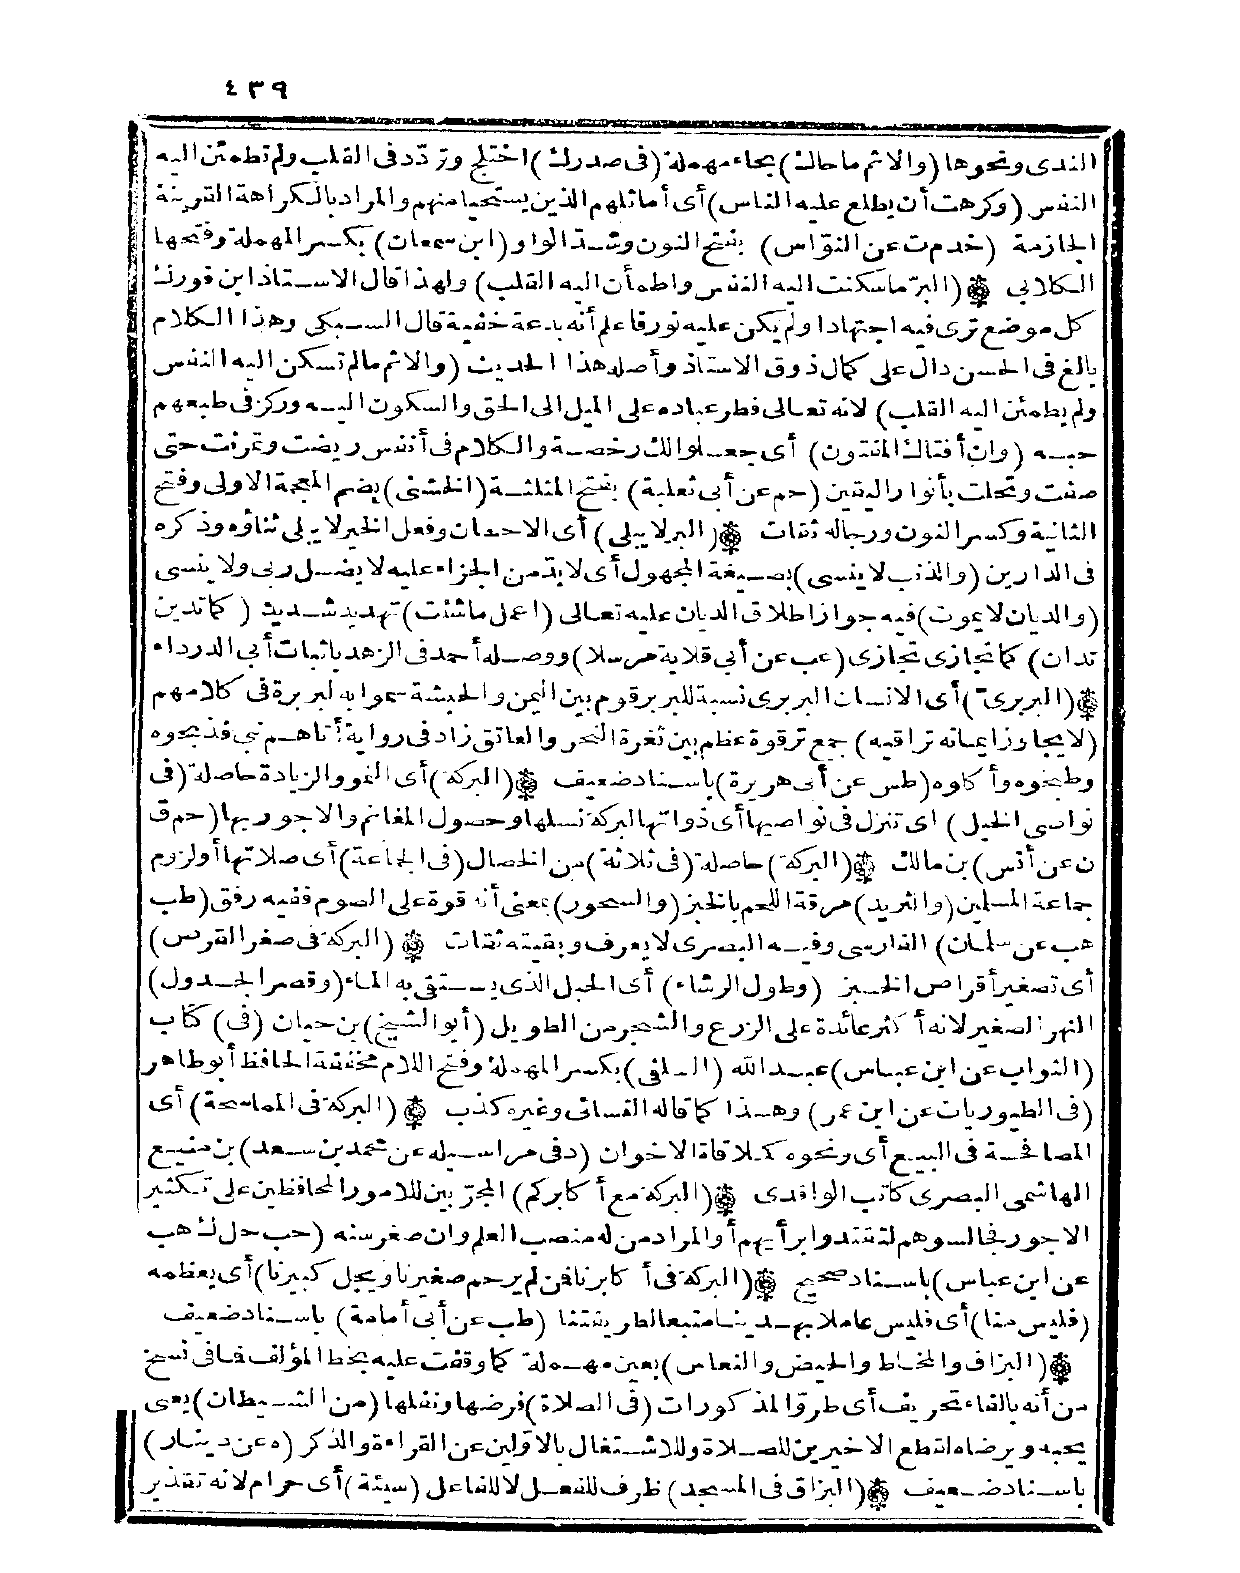 ٤٣٩
الندى ونحوها (والاثم ما حاك) بحاء مهملة (فى صدرك) اختلج وتردّد فى القلب ولم تطمئن اليه
النفس (وكرهت أن يطلع عليه الناس) أى أماثلهم الذين يستحيا منهم والمراد بالكراهة القرينة
الجازمة (خدم ت عن النوّاس) بفتح النون وشدّ الواو (ابن سمعان) بكسر المهملة وفتحها
الكلابى ۞ (البرّ ما سكنت اليه النفس واطمأن اليه القلب) ولهذا قال الاستاذ ابن فورك
كل موضع ترى فيه اجتهادا ولم يكن عليه نور فاعلم أنه بدعة خفية قال السبكى وهذا الكلام
بالغ فى الحسن دال على كمال ذوق الاستاذ وأصله هذا الحديث (والاثم ما لم تسكن اليه النفس
ولم يطمئن اليه القلب) لانه تعالى فطر عباده على الميل الى الحق والسكون اليه وركز فى طبعهم
حبه (وان أفتاك المفتون) أى جعلوا لك رخصة والكلام فى أنفس ريضت وتمرنت حتى
صفت وتحلت بأنوار اليقين (حم عن أبى ثعلبة) بفتح المثلثة (الخشنى) بضم المعجمة الاولى وفتح
الثانية وكسر النون ورجاله ثقات ۞ (البر لا يبلى) أى الاحسان وفعل الخير لا يبلى ثناؤه وذكره
فى الدارين (والذنب لا ينسى) بصيغة المجهول أى لا بدّ من الجزاء عليه لا يضل ربى ولا ينسى
(والديان لا يموت) فيه جواز اطلاق الديان عليه تعالى (اعمل ما شئت) تهديد شديد (كما تدين
تدان) كما تجازى تجازى (عب عن أبى قلابة مرسلا) ووصله أحمد فى الزهد باثبات أبى الدرداء
۞ (البربرى) أى الانسان البربرى نسبة للبربر قوم بين اليمن والحبشة سموا به لبربرة فى كلامهم
(لا يجاوز ايمانه تراقيه) جمع ترقوة عظم بين ثغرة النحر والعاتق زاد فى رواية أتاهم نبى فذبحوه
وطبخوه وأكلوه (طس عن أبى هريرة) باسناد ضعيف ۞ (البركة) أى النمو والزيادة حاصلة (فى
نواصى الخيل) اى تنزل فى نواصيها أى ذواتها البركة نسلها وحصول المغانم والاجور بها (حم ق
ن عن أنس) بن مالك ۞ (البركة) حاصلة (فى ثلاثة) من الخصال (فى الجماعة) أى صلاتها أو لزوم
جماعة المسلمين (والثريد) مرقة اللحم بالخبز (والسحور) بمعنى أنه قوة على الصوم ففيه رفق (طب
هب عن سلمان) الفارسى وفيه البصرى لا يعرف وبقيته ثقات ۞ (البركة فى صغر القرص)
أى تصغير أقراص الخبز (وطول الرشاء) أى الحبل الذى يستقى به الماء (وقصر الجدول)
النهر الصغير لانه أكثر عائدة على الزرع والشجر من الطويل (أبو الشيخ) بن حيان (فى) كتاب
(الثواب عن ابن عباس) عبد الله (السلفى) بكسر المهملة وفتح اللام مخففة الحافظ أبو طاهر
(فى الطيوريات عن ابن عمر) وهذا كما قاله النسائى وغيره كذب ۞ (البركة فى المماسحة) أى
المصافحة فى البيع أى ونحوه كملاقاة الاخوان (د فى مراسيله عن محمد بن سعد) بن منيع
الهاشمى البصرى كاتب الواقدى ۞ (البركة مع أكابركم) المجرّبين للامور المحافظين على تكثير
الاجور فجالسوهم لتقتدوا برأيهم أو المراد من له منصب العلم وان صغر سنه (حب حل ك هب
عن ابن عباس) باسناد صحيح ۞ (البركة فى أكابرنا فن لم يرحم صغيرنا ويجل كبيرنا) أى يعظمه
(فليس منا) أى فليس عاملا بهدينا متبعا لطريقتنا (طب عن أبى أمامة) باسناد ضعيف
۞ (البزاق والمخاط والحيض والنعاس) بعين مهملة كما وقفت عليه بخط المؤلف فما فى نسخ
من أنه بالفاء تحريف أى طروّ المذكورات (فى الصلاة) فرضها ونفلها (من الشيطان) يعنى
يحبه ويرضاه لقطع الاخيرين للصلاة وللاشتغال بالاوّلين عن القراءة والذكر (ه عن دينار)
باسناد ضعيف ۞ (البزاق فى المسجد) ظرف للفعل لا للفاعل (سيئة) أى حرام لانه تقذير